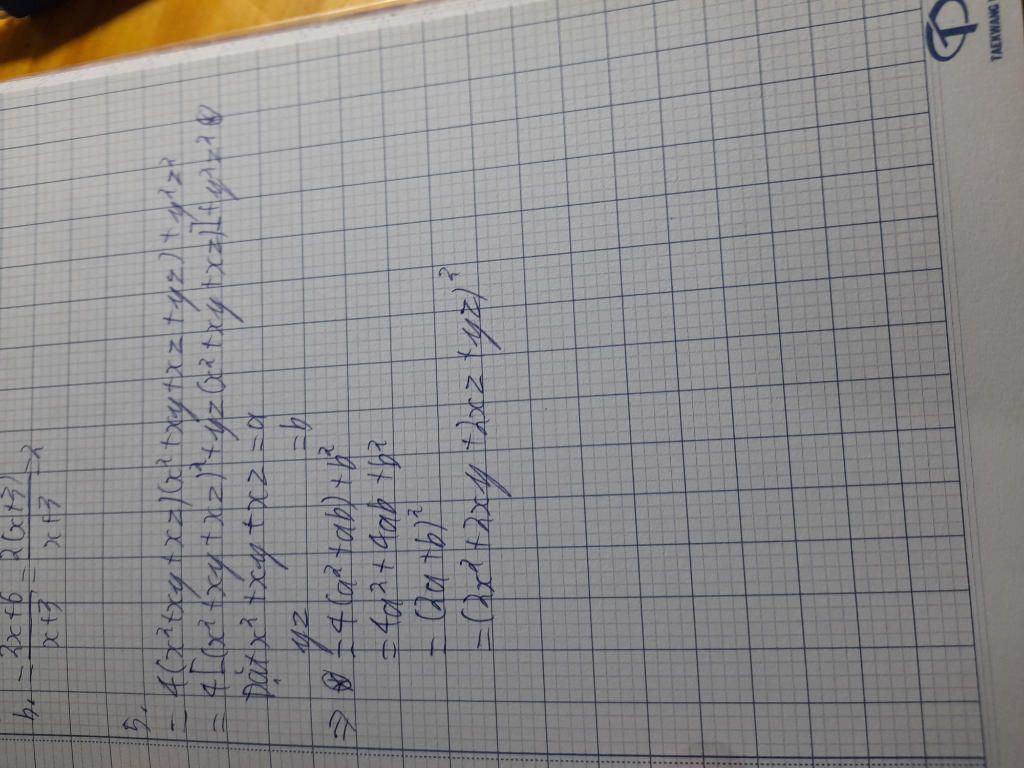 b, = 2x+6 / x+3 = 2(x+3) / x+3 = 2
5,
= 4(x²+xy+xz)(x²+xy+xz+yz)+y²z²
= 4[(x²+xy+xz)²+yz(x²+xy+xz)]+y²z²
Đặt x²+xy+xz=a
yz =b
⇒ =4(a²+ab)+b²
=4a²+4ab+b²
=(2a+b)²
=(2x²+2xy+2xz+yz)²
TAEKWANG